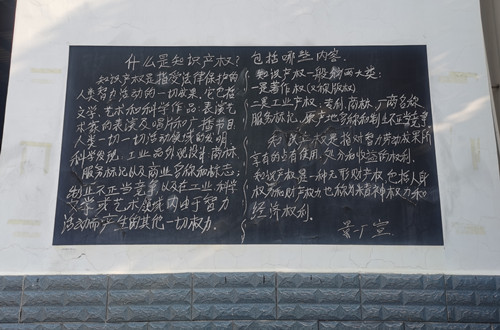 什么是知识产权？包括哪些内容.
知识产权是指受法律保护的
人类智力活动的一切成果，它包括
文学、艺术和科学作品；表演艺
术家的表演及唱片和广播节目，
人类一切活动领域的发明
科学发现，工业品外观设计；商标
服务标记以及商业名称和标志；
制止不正当竞争以及在工业、科学
文学或艺术领域内由于智力
活动而产生的其他一切权力.
知识产权一般分两大类：
一是著作权(又称版权)
二是工业产权：专利、商标、厂商名称
服务标记、原产地名称和制止不正当竞争
知识产权是指对智力劳动成果所
享有的占有使用、处分和收益的权利.
知识产权是一种无形财产权，也称人身
权力和财产权力也称为精神权力和
经济权利.
宣